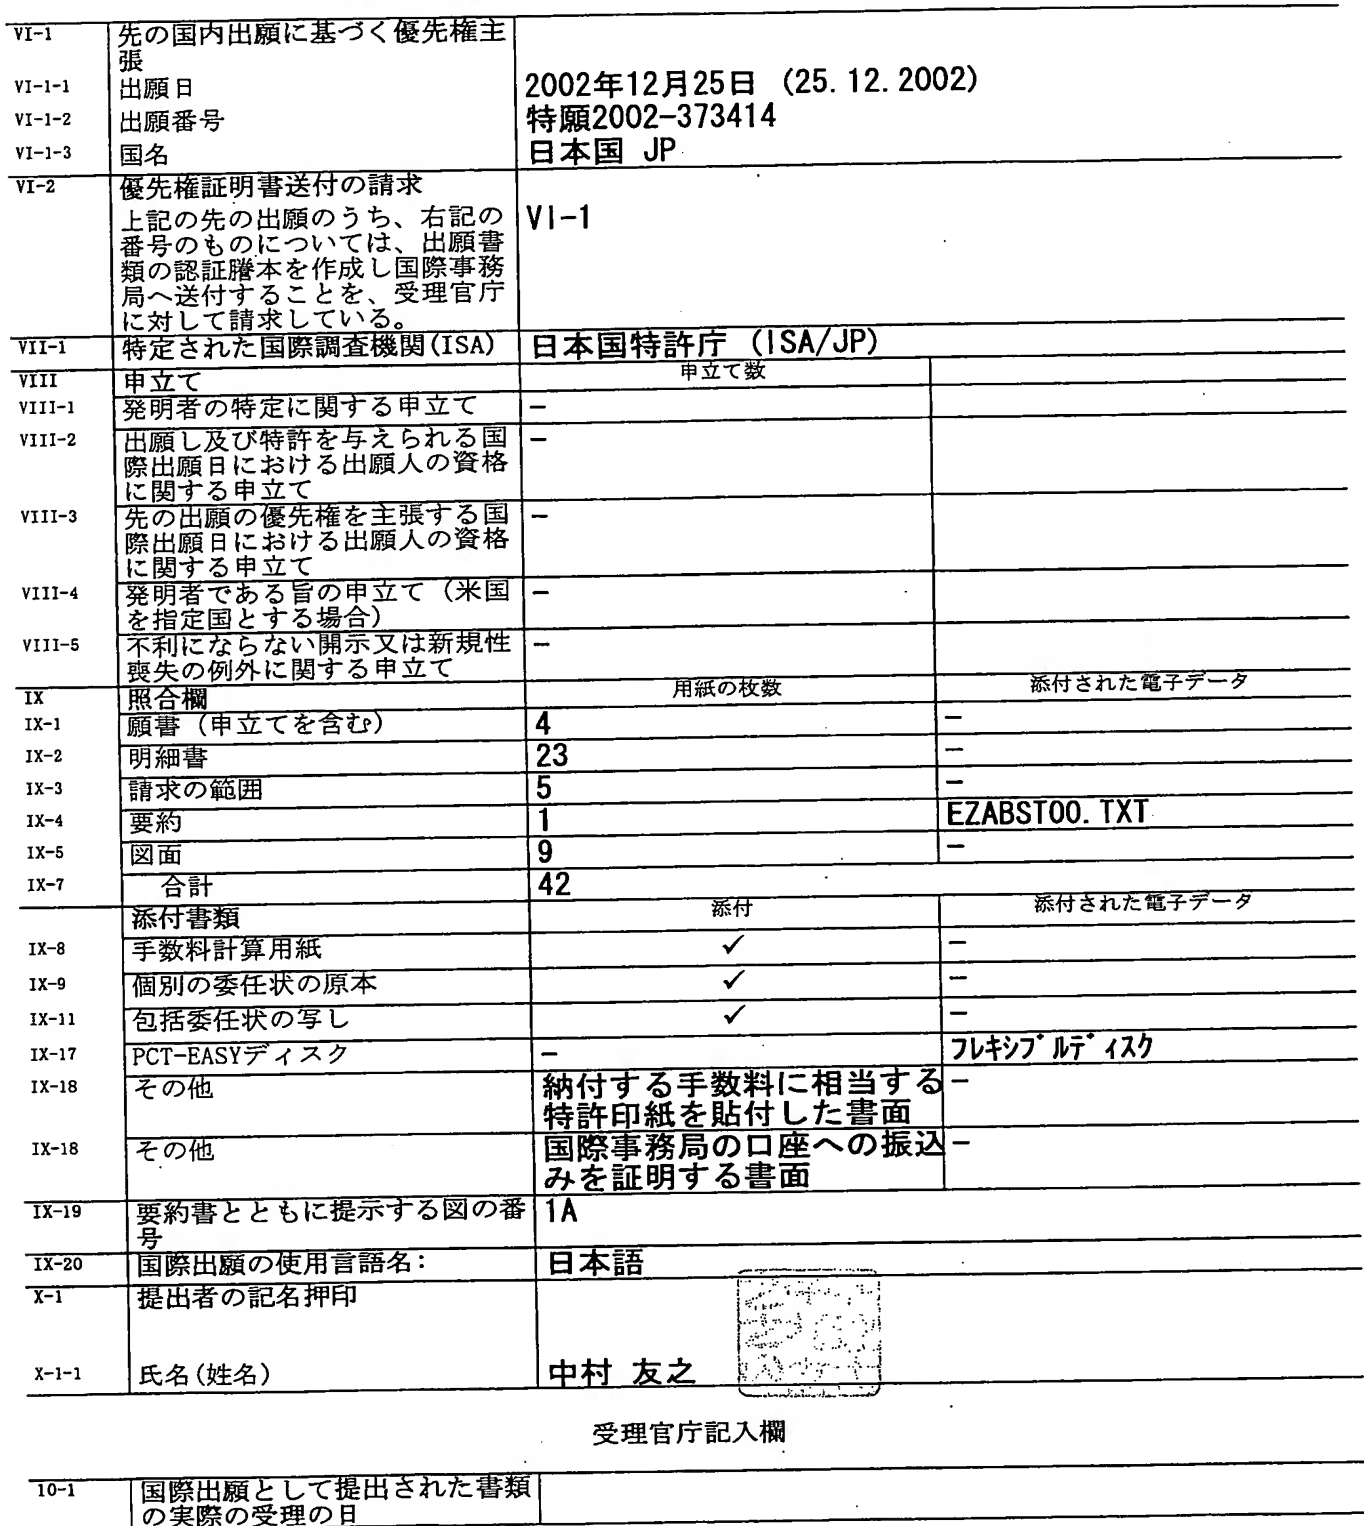 VI-1 先の国内出願に基づく優先権主
張
VI-1-1 出願日 2002年12月25日 (25.12.2002)
VI-1-2 出願番号 特願2002-373414
VI-1-3 国名 日本国 JP
VI-2 優先権証明書送付の請求
上記の先の出願のうち、右記の VI-1
番号のものについては、出願書
類の認証謄本を作成し国際事務
局へ送付することを、受理官庁
に対して請求している。
VII-1 特定された国際調査機関(ISA) 日本国特許庁 (ISA/JP)
VIII 申立て 申立て数
VIII-1 発明者の特定に関する申立て -
VIII-2 出願し及び特許を与えられる国 -
際出願日における出願人の資格
に関する申立て
VIII-3 先の出願の優先権を主張する国 -
際出願日における出願人の資格
に関する申立て
VIII-4 発明者である旨の申立て (米国 -
を指定国とする場合)
VIII-5 不利にならない開示又は新規性 -
喪失の例外に関する申立て
IX 照合欄 用紙の枚数 添付された電子データ
IX-1 願書 (申立てを含む) 4 -
IX-2 明細書 23 -
IX-3 請求の範囲 5 -
IX-4 要約 1 EZABST00.TXT
IX-5 図面 9 -
IX-7 合計 42
添付書類 添付 添付された電子データ
IX-8 手数料計算用紙 ✓ -
IX-9 個別の委任状の原本 ✓ -
IX-11 包括委任状の写し ✓ -
IX-17 PCT-EASYディスク - フレキシブルディスク
IX-18 その他 納付する手数料に相当する -
特許印紙を貼付した書面
IX-18 その他 国際事務局の口座への振込 -
みを証明する書面
IX-19 要約書とともに提示する図の番 1A
号
IX-20 国際出願の使用言語名: 日本語
X-1 提出者の記名押印
X-1-1 氏名(姓名) 中村 友之
受理官庁記入欄
10-1 国際出願として提出された書類
の実際の受理の日